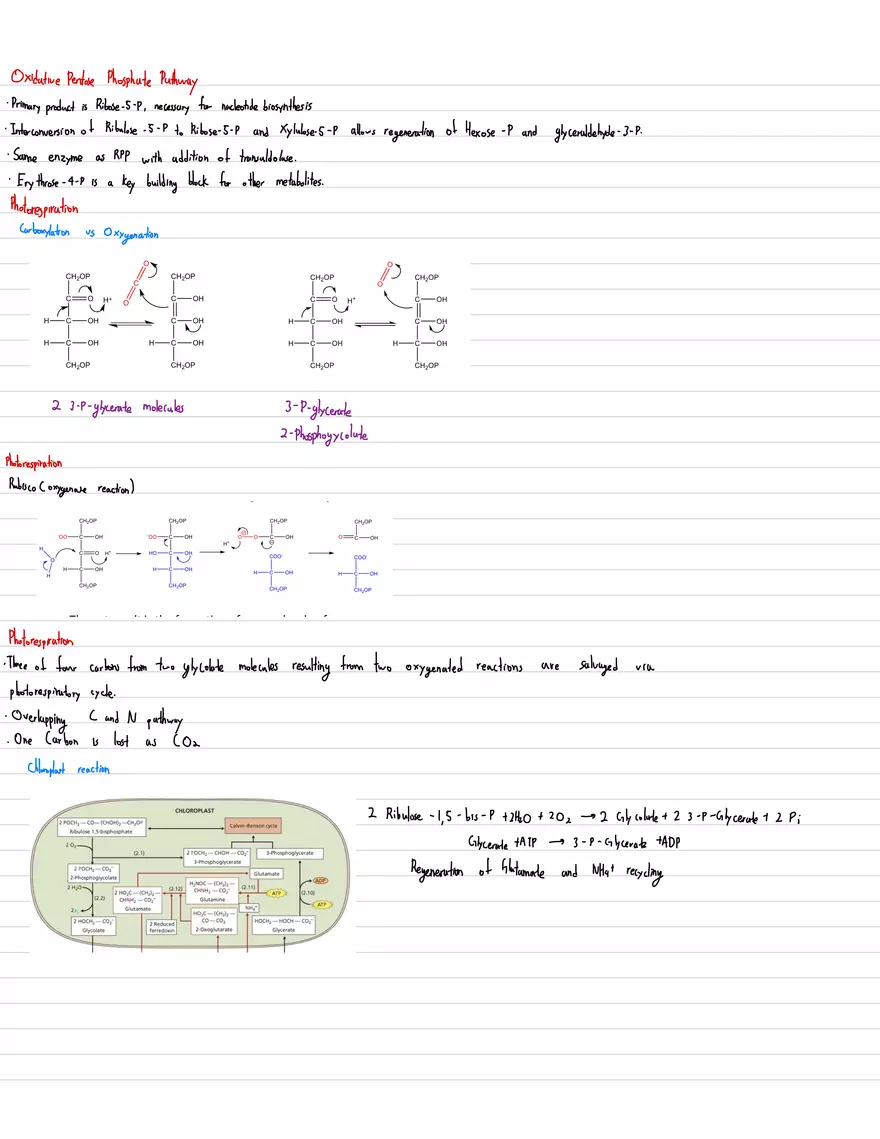 Oxidative Pentose Phosphate Pathway
· Primary product is Ribose-5-P, necessary for nucleotide biosynthesis
· Interconversion of Ribulose-5-P to Ribose-5-P and Xylulose-5-P allows regeneration of Hexose-P and glyceraldehyde-3-P.
· Same enzyme as RPP with addition of transaldolase.
· Erythrose-4-P is a key building block for other metabolites.
Photorespiration
Carboxylation vs Oxygenation
CH₂OP O CH₂OP CH₂OP O CH₂OP
C O H⁺ O C C OH C O H⁺ O C OH
H C OH C OH H C OH C OH
H C OH H C OH H C OH H C OH
CH₂OP CH₂OP CH₂OP CH₂OP
2 3-P-glycerate molecules 3-P-glycerate
2-Phosphogycolate
Photorespiration
Rubisco (oxygenase reaction)
CH₂OP CH₂OP CH₂OP CH₂OP
⁻OO C OH ⁻OO C OH H⁺ O O C OH O C OH
H O H C O H⁺ HO C OH COO⁻ COO⁻
H C OH H C OH H C OH H C OH
CH₂OP CH₂OP CH₂OP CH₂OP
Photorespiration
· Three of four carbons from two glycolate molecules resulting from two oxygenated reactions are salvaged via
photorespiratory cycle.
· Overlapping C and N pathway
· One Carbon is lost as CO₂
Chloroplast reaction
CHLOROPLAST
2 POCH₂ — CO — (CHOH)₂ — CH₂OP
Ribulose 1,5-bisphosphate
Calvin–Benson cycle
2 O₂
(2.1)
2 POCH₂ — CHOH — CO₂⁻
3-Phosphoglycerate
3-Phosphoglycerate
2 POCH₂ — CO₂⁻
2-Phosphoglycolate
Glutamate
2 H₂O
(2.2)
2 HO₂C — (CH₂)₂ —
CHNH₂ — CO₂⁻
Glutamate
(2.12)
H₂NOC — (CH₂)₂ —
CHNH₂ — CO₂⁻
Glutamine
(2.11)
ATP
ADP
(2.10)
ATP
NH₄⁺
2 HOCH₂ — CO₂⁻
Glycolate
2 Reduced
ferredoxin
HO₂C — (CH₂)₂ —
CO — CO₂
2-Oxoglutarate
HOCH₂ — HOCH — CO₂⁻
Glycerate
2 Ribulose-1,5-bis-P + 2H₂O + 2O₂ → 2 Glycolate + 2 3-P-Glycerate + 2 Pi
Glycerate + ATP → 3-P-Glycerate + ADP
Regeneration of Glutamate and NH₄⁺ recycling